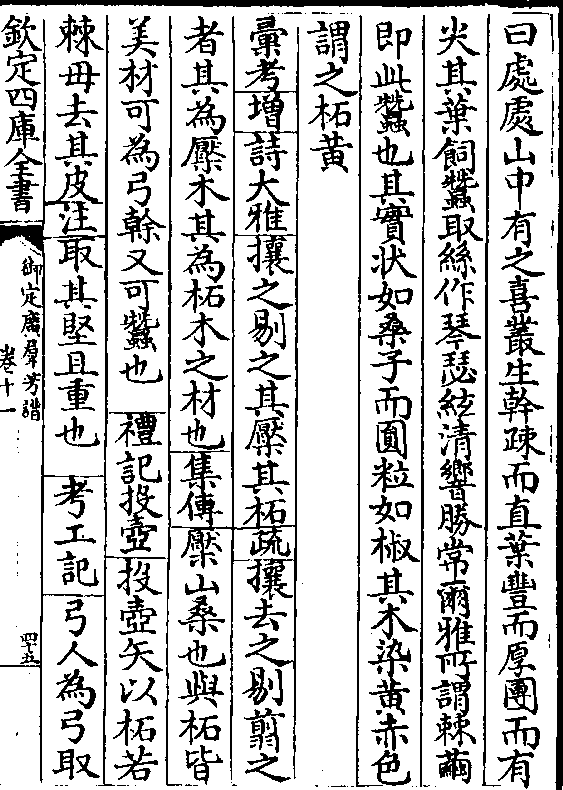 曰處處山中有之喜叢生幹疎而直葉豐而厚團而有
尖其葉飼蠶取絲作琴瑟絃清響勝常爾雅所謂棘繭
即此蠶也其實狀如桑子而圓粒如椒其木染黄赤色
謂之柘黄
彚考增詩大雅攘之剔之其檿其柘疏攘去之剔翦之
者其為檿木其為柘木之材也集傳檿山桑也與柘皆
美材可為弓幹又可蠶也 禮記投壺投壺矢以柘若
棘毋去其皮注取其堅且重也 考工記弓人為弓取
欽定四庫全書
御定廣羣芳譜
卷十一
四十五